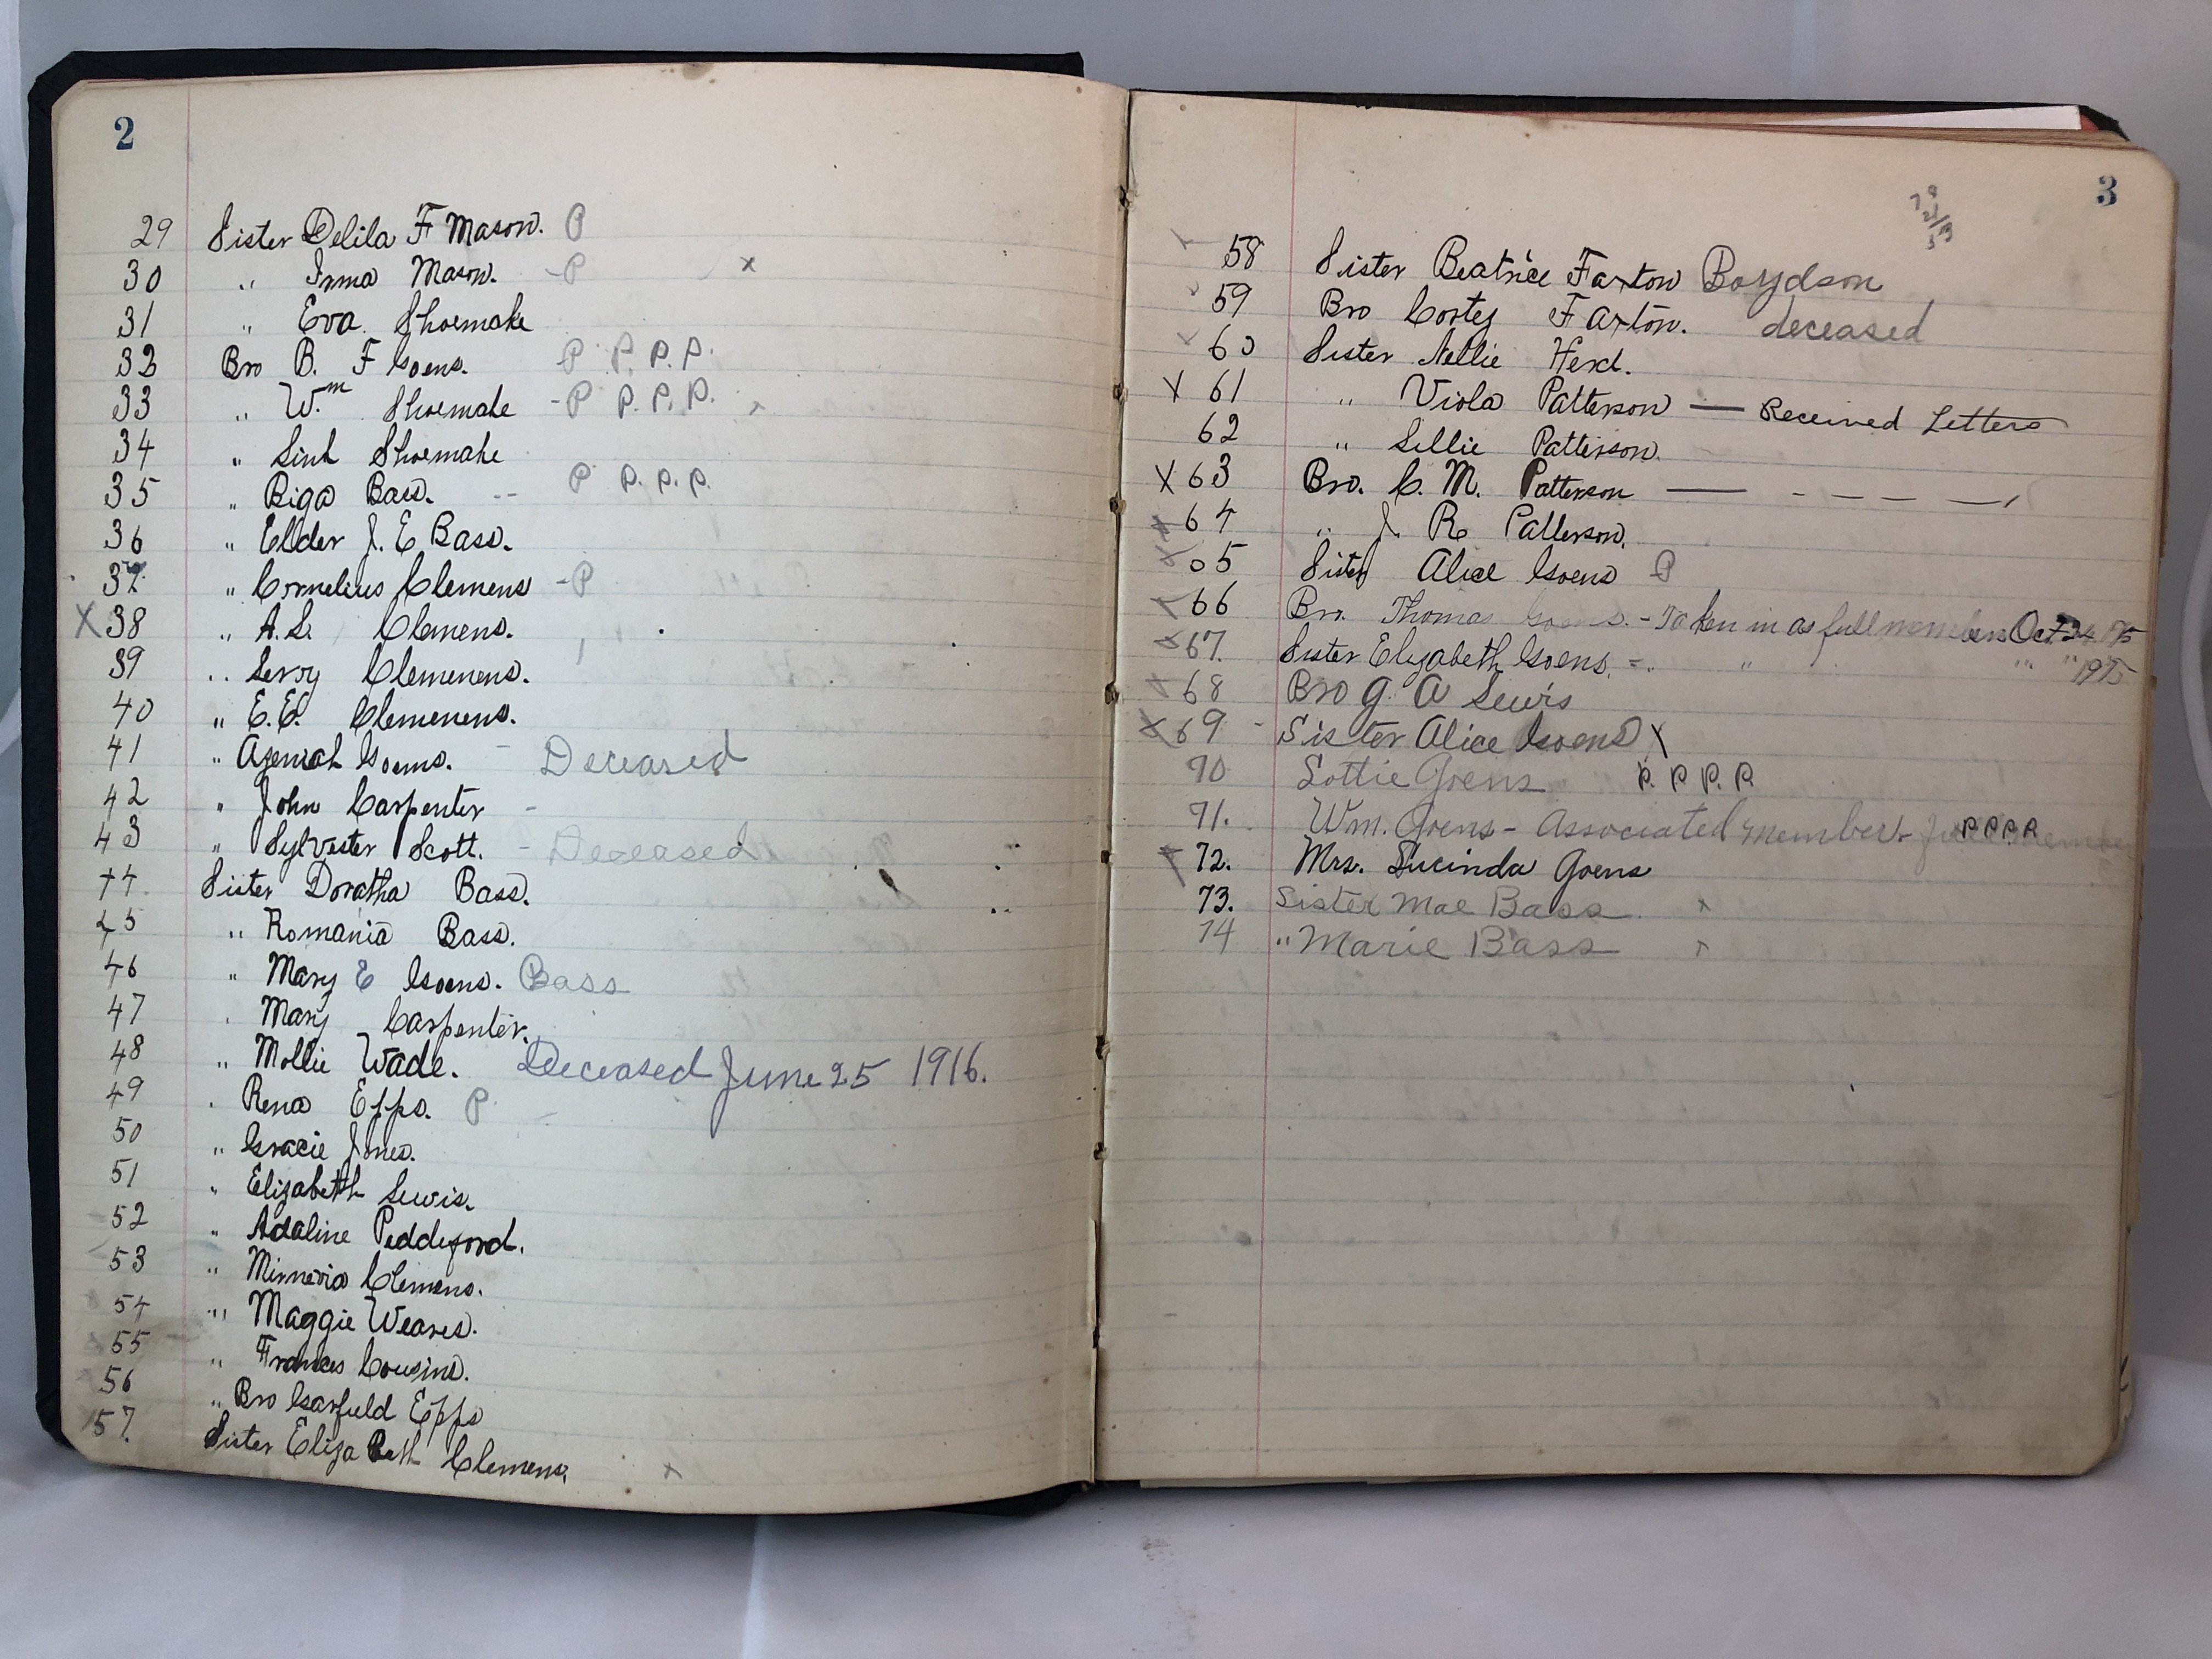 2
29 Sister Delila F Mason. P
30 " Irma Mason. -P x
31 " Eva Shoemake
32 Bro B. F Goens. P P. P. P.
33 " Wm. Shoemake -P P. P. P.
34 " Shoemake
35 " Riga Bass. -- P P. P. P.
36 " Elder J. E Bass.
37. " Cornelius Clemens -P
X 38 " A. L. Clemens.
39 " Leroy Clemenens.
40 " E. E. Clemenens.
41 " Azemah Goens. - Deceased
42 " John Carpenter -
43 " Sylvester Scott. - Deceased
44. Sister Doratha Bass.
45 " Romania Bass.
46 " Mary E Goens. Bass
47 " Mary Carpenter.
48 " Mollie Wade. Deceased June 25 1916.
49 " Rena Epps. P
50 " Gracie Jones.
51 " Elizabeth Lewis.
52 " Adaline Peddeford.
53 " Minnervia Clemens.
54 " Maggie Weaver.
55 " Frances Cousins.
56 " Bro Garfield Epps
57. Sister Eliza Beth Clemens. x
3
58 Sister Beatrice Faxton Boydson
59 Bro Cortez Faxton. deceased
60 Sister Nellie Herd.
X 61 " Viola Patterson — Received Letters
62 " Lillie Patterson.
X 63 Bro. C. M. Patterson — - - - —
x 64 " J. R. Patterson.
x 65 Sister Alice Goens P
x 66 Bro. Thomas Goens. - Taken in as full members Oct 24
x 67. Sister Elizabeth Goens. - " " "
x 68 Bro G. A Lewis
x 69 - Sister Alice Goens X
70 Lottie Goens P. P P. P.
71. Wm. Goens - Associated member - P P P P
x 72. Mrs. Lucinda Goens
73. Sister Mae Bass x
74 " Marie Bass x